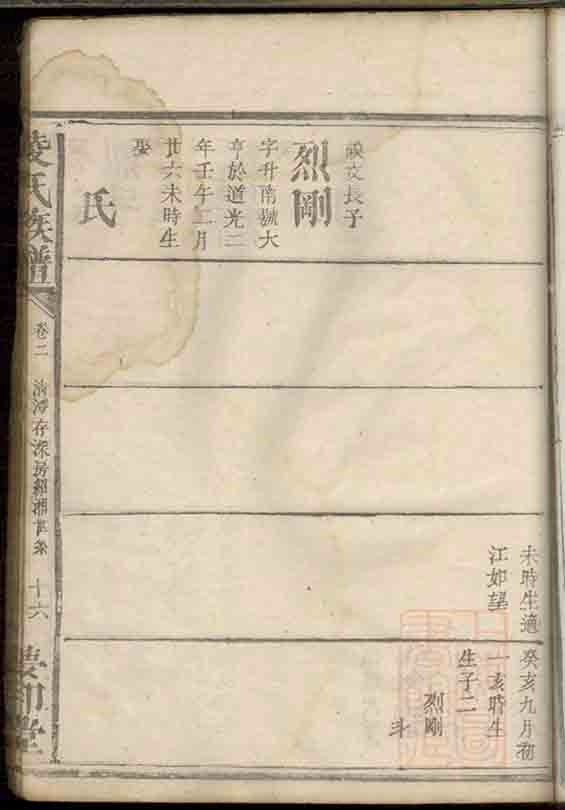 未時生適
江如望
癸亥九月初
一亥時生
生子二
烈剛
斗
長子
烈剛
字升南號大
亨於道光二
年壬午二月
廿六未時生
娶
氏
凌氏族譜
卷二
存深房紹
十六